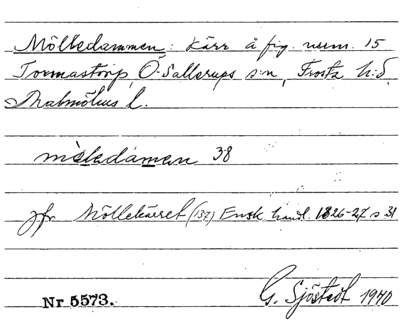 Mölledammen: Kärr å fig. num. 15
Tormastorp, Ö. Sallerups s:n, Frosta h:d,
Malmöhus l.
möledamen 38
jfr Möllekärret (137) Ensk. handl. 1826-27 s 31
Nr 5573.
G. Sjöstedt 1940